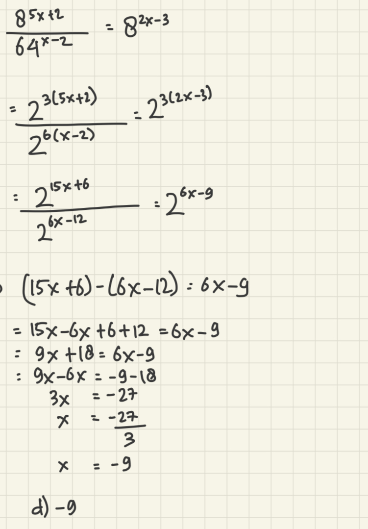 8^(5x+2) / 64^(x-2) = 8^(2x-3)
= 2^(3(5x+2)) / 2^(6(x-2)) = 2^(3(2x-3))
= 2^(15x+6) / 2^(6x-12) = 2^(6x-9)
(15x+6)-(6x-12) = 6x-9
= 15x-6x+6+12 = 6x-9
= 9x+18 = 6x-9
= 9x-6x = -9-18
3x = -27
x = -27/3
x = -9
d) -9